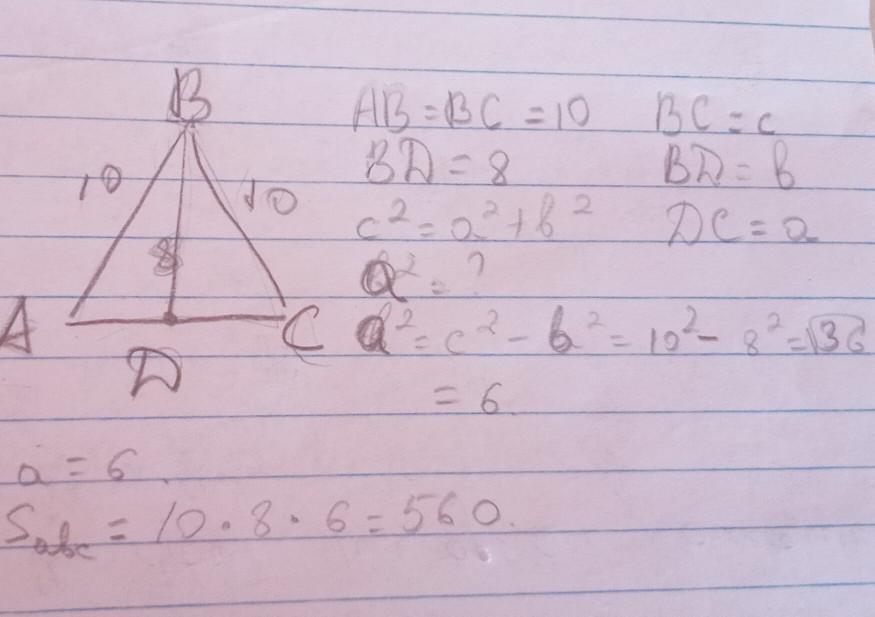 B
10
10
8
A
C
D
AB = BC = 10
BC = c
BD = 8
BD = b
c² = a² + b²
DC = a
a² = ?
a² = c² - b² = 10² - 8² = √36
= 6
a = 6
Sabc = 10 · 8 · 6 = 560.